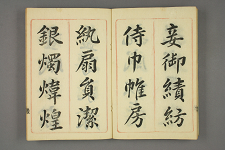 妾御績紡
侍巾帷房
紈扇員潔
銀燭煒煌